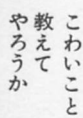 こわいこと
教えて
やろうか